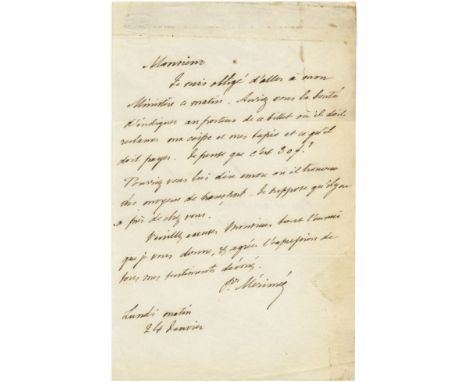 Monsieur
Je suis obligé d'aller à mon
Ministère ce matin. Auriez vous la bonté
d'indiquer au porteur de ce billet où il doit
reclamer ma caisse et mes tapis et ce qu'il
doit payer. Je pense que c'est 30 f.?
Pourriez vous lui dire où il trouvera
des moyens de transport. Je suppose qu'il y en
a près de chez vous.
Veuillez excuser Monsieur tout l'ennui
que je vous donne, & agréer l'expression de
tous mes sentiments dévoués.
Pr. Mérimée
Lundi matin
24 Janvier